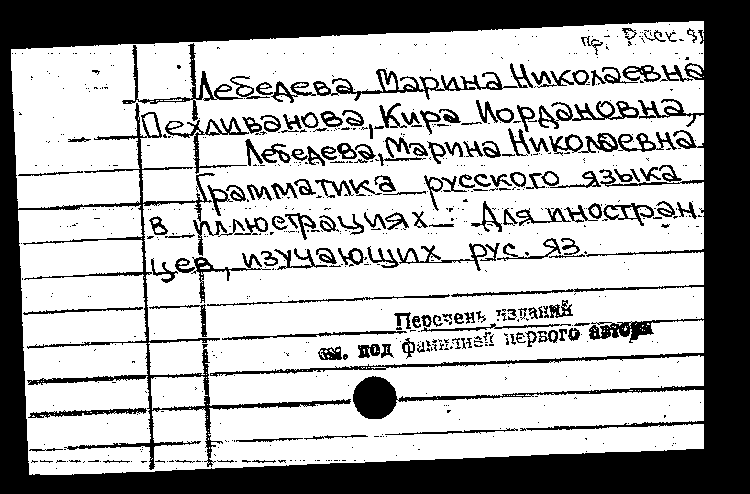 пр. Русск. яз
Лебедева, Марина Николаевна
Пехливанова, Кира Иордановна,
Лебедева, Марина Николаевна
Грамматика русского языка
в иллюстрациях : Для иностран-
цев, изучающих рус. яз.
Перечень изданий
см. под фамилией первого автора